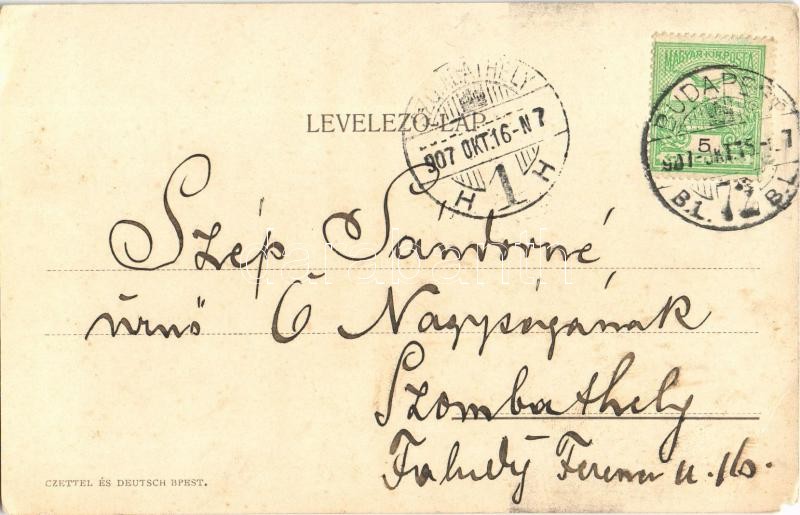 MAGYAR KIR. POSTA
5
BUDAPEST
907 OKT.15
B.L. 72 B.L.
SZOMBATHELY
907 OKT.16-N7
H 1 H
LEVELEZŐ-LAP.
Szép Sándorné
úrnő Ő Nagyságának
Szombathely
Faludy Ferenc u. 16.
CZETTEL ÉS DEUTSCH BPEST.
darabanth